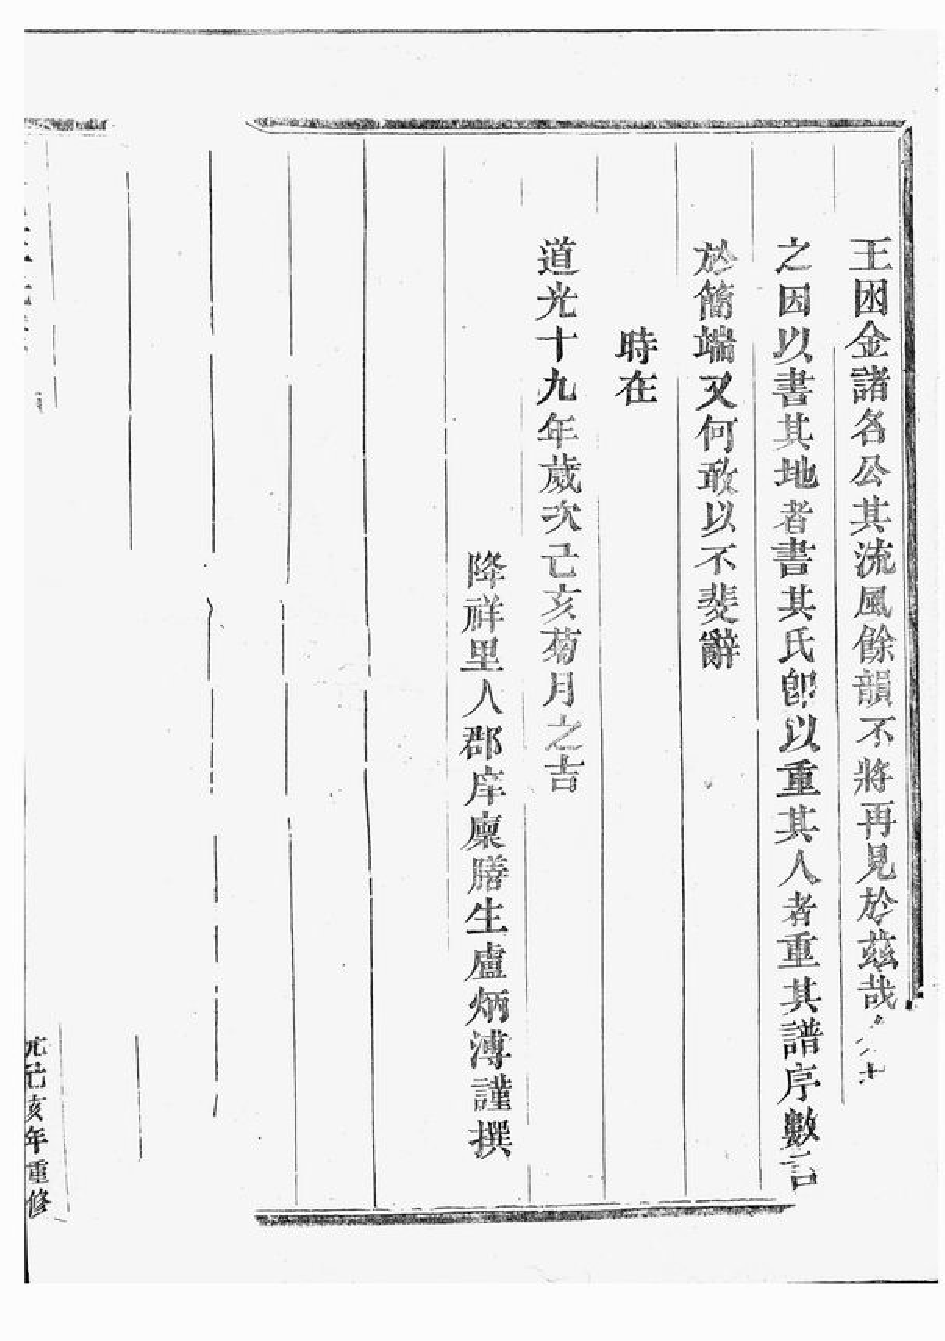 王囦金諸名公其流風餘韻不將再見於茲哉
之因以書其地者書其氏卽以重其人者重其譜序數言
於簡端又何敢以不斐辭
時在
道光十九年歲次己亥菊月之吉
降祥里人郡庠廩膳生盧炳溥謹撰
光己亥年重修